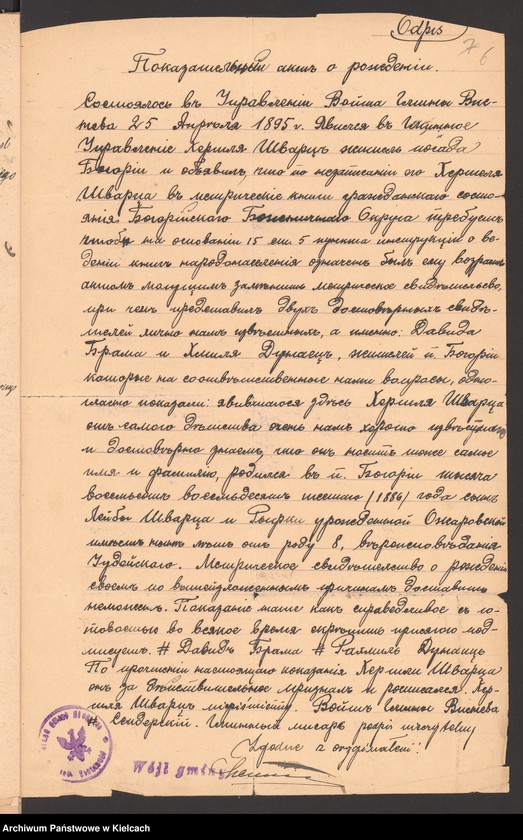 Odpis
6
Показательный актъ о рожденіи.
Состоялось въ Управленіи Войта Гмины Вис-
тева 25 Апрѣля 1895 г. Явился въ Гминное
Управленіе Хершля Шварцъ житель посада
Богоріи и объявилъ, что по незаписаніи его Хершеля
Шварца въ метрическіе книги гражданскаго состо-
янія Богорійскаго Округа требуетъ
чтобы на основаніи 15 ст. 5 пункта инструкціи о ве-
деніи книгъ народонаселенія означенъ былъ ему возрастъ
актомъ могущимъ замѣнить метрическое свидѣтельство,
при чемъ представилъ двухъ достовѣрныхъ свидѣ-
телей лично намъ извѣстныхъ, а именно: Давида
Брама и Хмиля Дунаецъ, жителей п. Богоріи
которые на соотвѣтственные нами вопросы, одно-
гласно показали: явившагося здѣсь Хершля Шварца
отъ самого дѣтства очень намъ хорошо извѣстнаго
и достовѣрно знаемъ, что онъ носитъ тоже самое
имя и фамилію, родился въ п. Богоріи тысяча
восемьсотъ восемьдесятъ шестаго /1886/ года сынъ
Лейбы Шварца и урожденной Ожаровской
имѣетъ нынѣ лѣтъ отъ роду 8, вѣроисповѣданія
Іудейскаго. Метрическое свидѣтельство о рожденіи
своемъ по вышеизложеннымъ причинамъ доставить
неможетъ. Показаніе наше какъ справедливое съ го-
товостью во всякое время скрѣпить присягою под-
писуемъ. # Давидъ Брама # Дунаецъ
По прочтеніи настоящаго показанія Хершля Шварца
онъ за дѣйствительное призналъ и росписался. Хер-
шля Шварцъ. Войтъ Гмины Вистева
# Сендерскій. Гминный писарь podpis nieczytelny
Zgodne z oryginałem:
Wójt gminy
Archiwum Państwowe w Kielcach